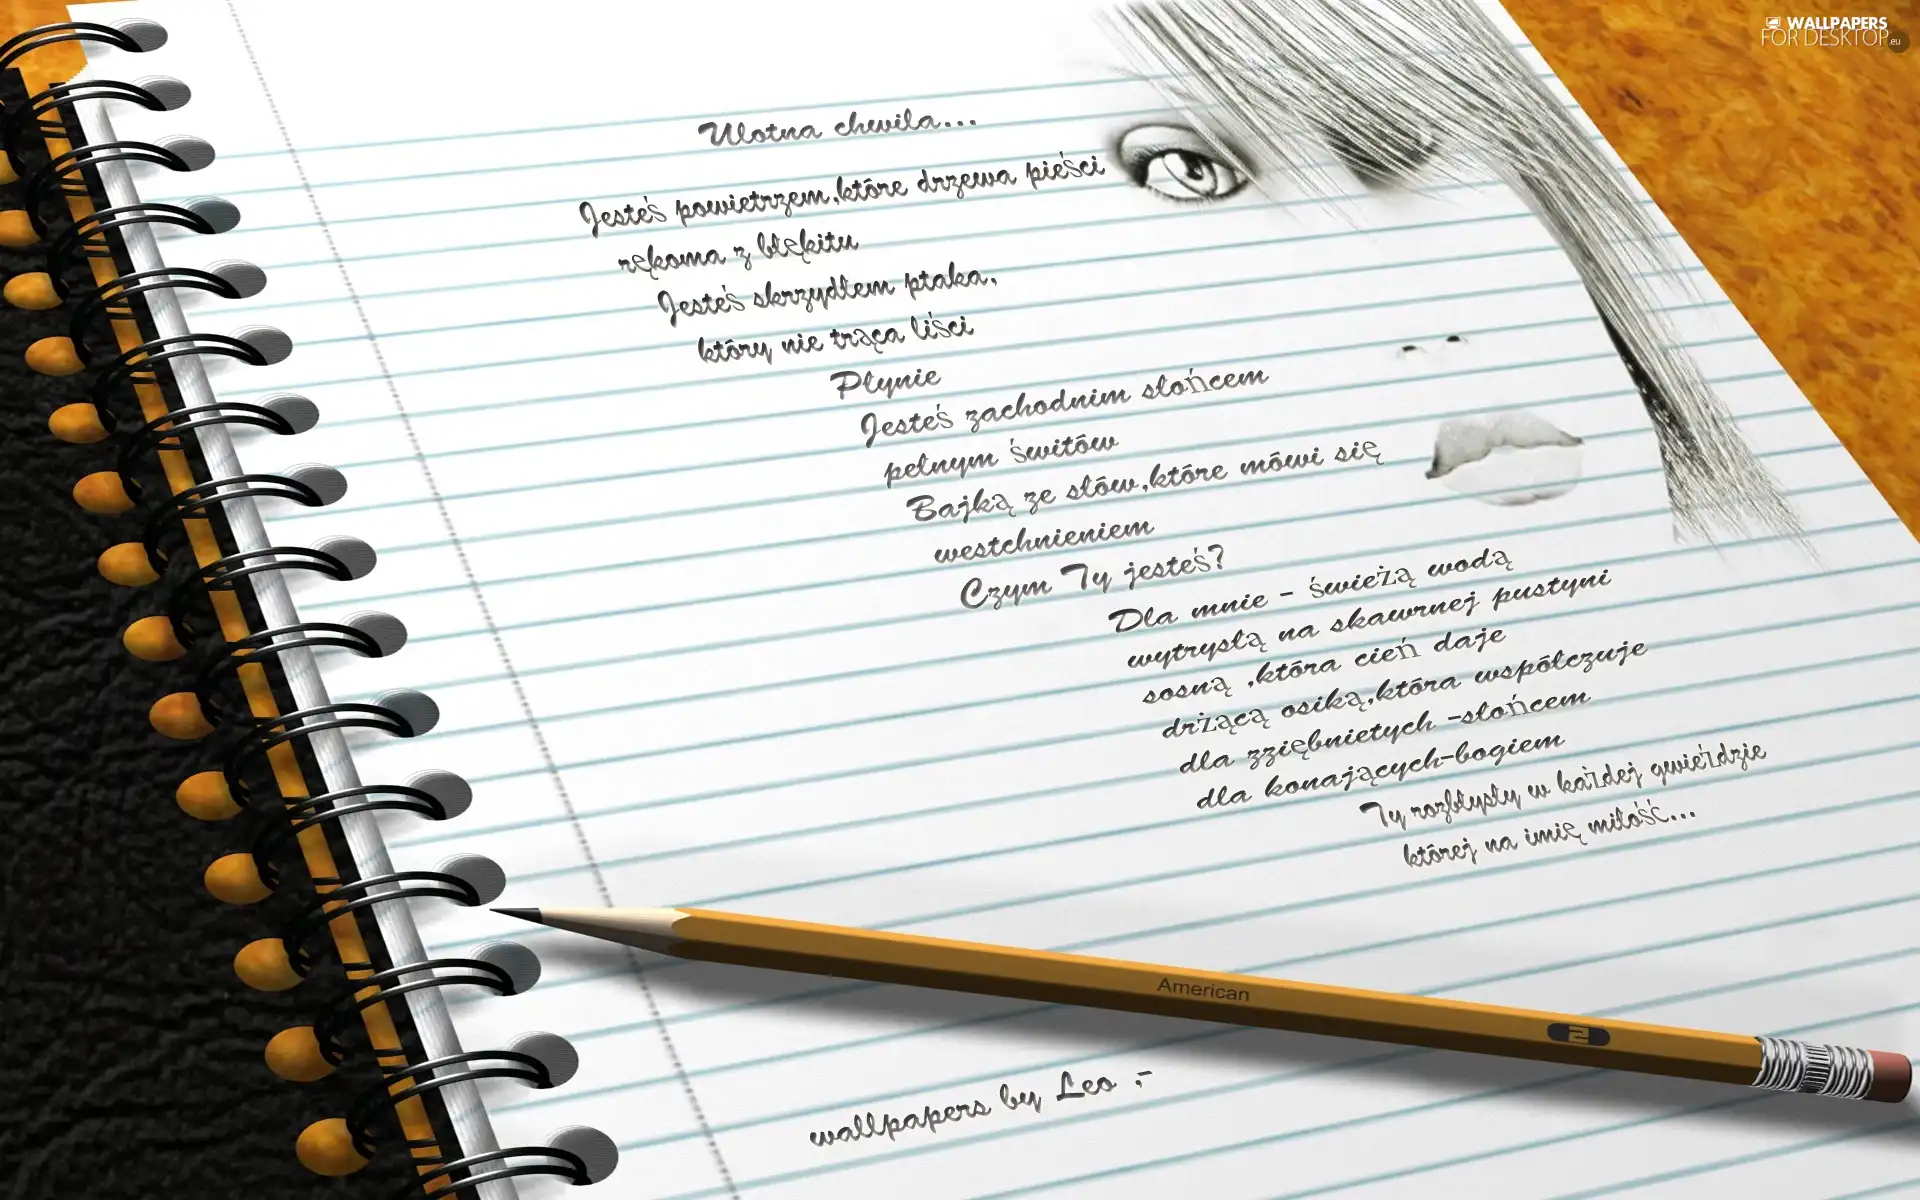 WALLPAPERS
FOR DESKTOP.eu
Ulotna chwila...
Jesteś powietrzem,które drzewa pieści
rękoma z błękitu
Jesteś skrzydłem ptaka,
który nie trąca liści
Płynie
Jesteś zachodnim słońcem
pełnym świtów
Bajką ze słów,które mówi się
westchnieniem
Czym Ty jesteś?
Dla mnie - świeżą wodą
wytrysłą na skawrnej pustyni
sosną ,która cień daje
drżącą osiką,która współczuje
dla zziębnietych -słońcem
dla konających-bogiem
Ty rozbłysły w każdej gwieździe
której na imię miłość...
American
2
wallpapers by Leo ,-